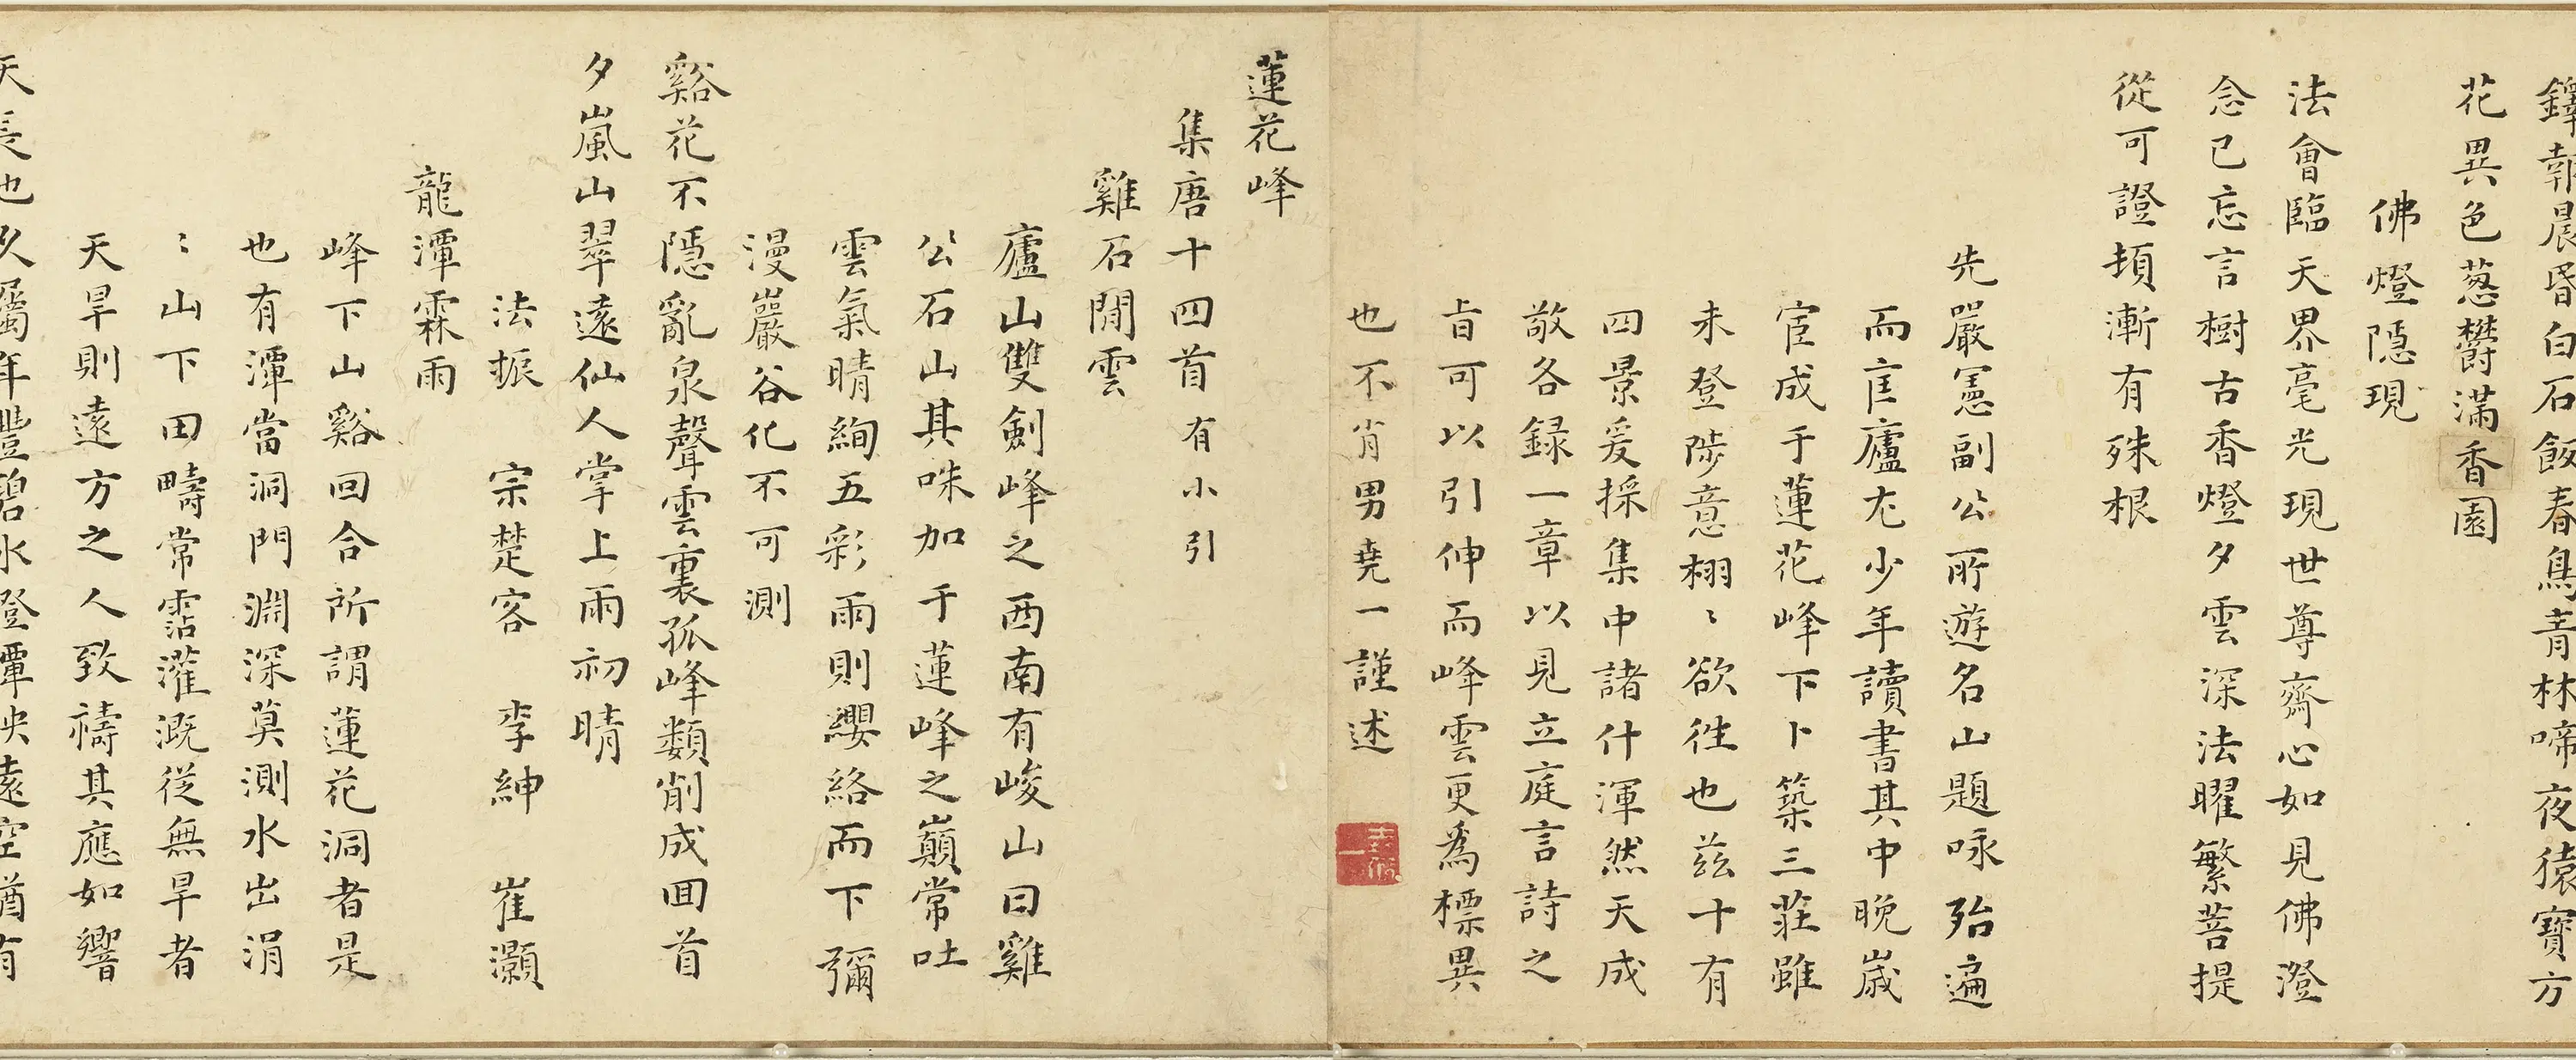 鐸報晨昏白石飯春鳥青林啼夜猿寶方
花異色葱欝滿香園
佛燈隱現
法會臨天界毫光現世尊齋心如見佛澄
念已忘言樹古香燈夕雲深法曜繁菩提
從可證頓漸有殊根
先嚴憲副公所遊名山題咏殆遍
而匡廬尤少年讀書其中晚歲
宦成于蓮花峰下卜築三莊雖
未登陟意栩〻欲徃也兹十有
四景爰採集中諸什渾然天成
敬各録一章以見立庭言詩之
旨可以引伸而峰雲更爲標異
也不肖男堯一謹述
蓮花峰
集唐十四首有小引
雞石閒雲
廬山雙劍峰之西南有峻山曰雞
公石山其咮加于蓮峰之巔常吐
雲氣晴絢五彩雨則纓絡而下彌
漫巖谷化不可測
谿花不隱亂泉聲雲裏孤峰類削成回首
夕嵐山翠遠仙人掌上雨初晴
法振 宗楚客 李紳 崔灝
龍潭霖雨
峰下山谿回合所謂蓮花洞者是
也有潭當洞門淵深莫測水出涓
〻山下田疇常霑灌溉從無旱者
天旱則遠方之人致禱其應如響
天長也久屬年豐碧水澄潭映遠空猶有